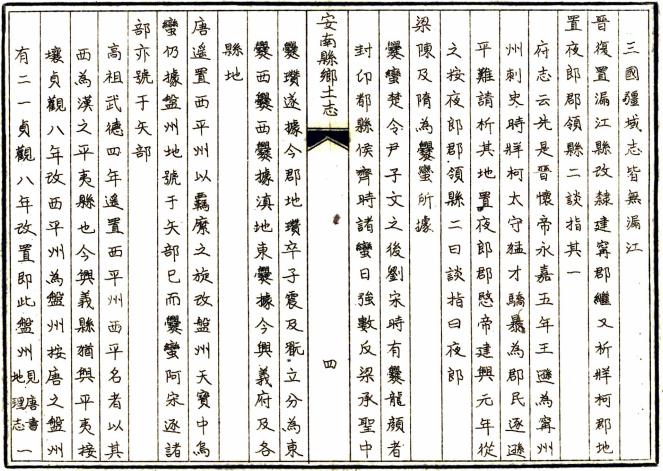 三國疆域志皆無漏江
晉復置漏江縣改隸建寧郡繼又析牂柯郡地
置夜郎郡領縣二談指其一
府志云先是晉懷帝永嘉五年王遜為寧州
州刺史時牂柯太守猛才驕暴為郡民逐遜
平難請析其地置夜郎郡愍帝建興元年從
之按夜郎郡領縣二曰談指曰夜郎
梁陳及隋為爨蠻所據
爨蠻楚令尹子文之後劉宋時有爨龍顏者
封卭都縣侯齊時諸蠻日強數反梁承聖中
安南縣鄉土志
四
爨瓚遂據今郡地瓚卒子震及翫立分為東
爨西爨西爨據滇地東爨據今興義府及各
縣地
唐遥置西平州以羈縻之旋改盤州天寶中烏
蠻仍據盤州地號于矢部已而爨蠻阿宋逐諸
部亦號于矢部
高祖武德四年遥置西平州西平名者以其
西為漢之平夷縣也今興義縣猶與平夷接
壤貞觀八年改西平州為盤州按唐之盤州
有二一貞觀八年改置即此盤州見唐書地理志一